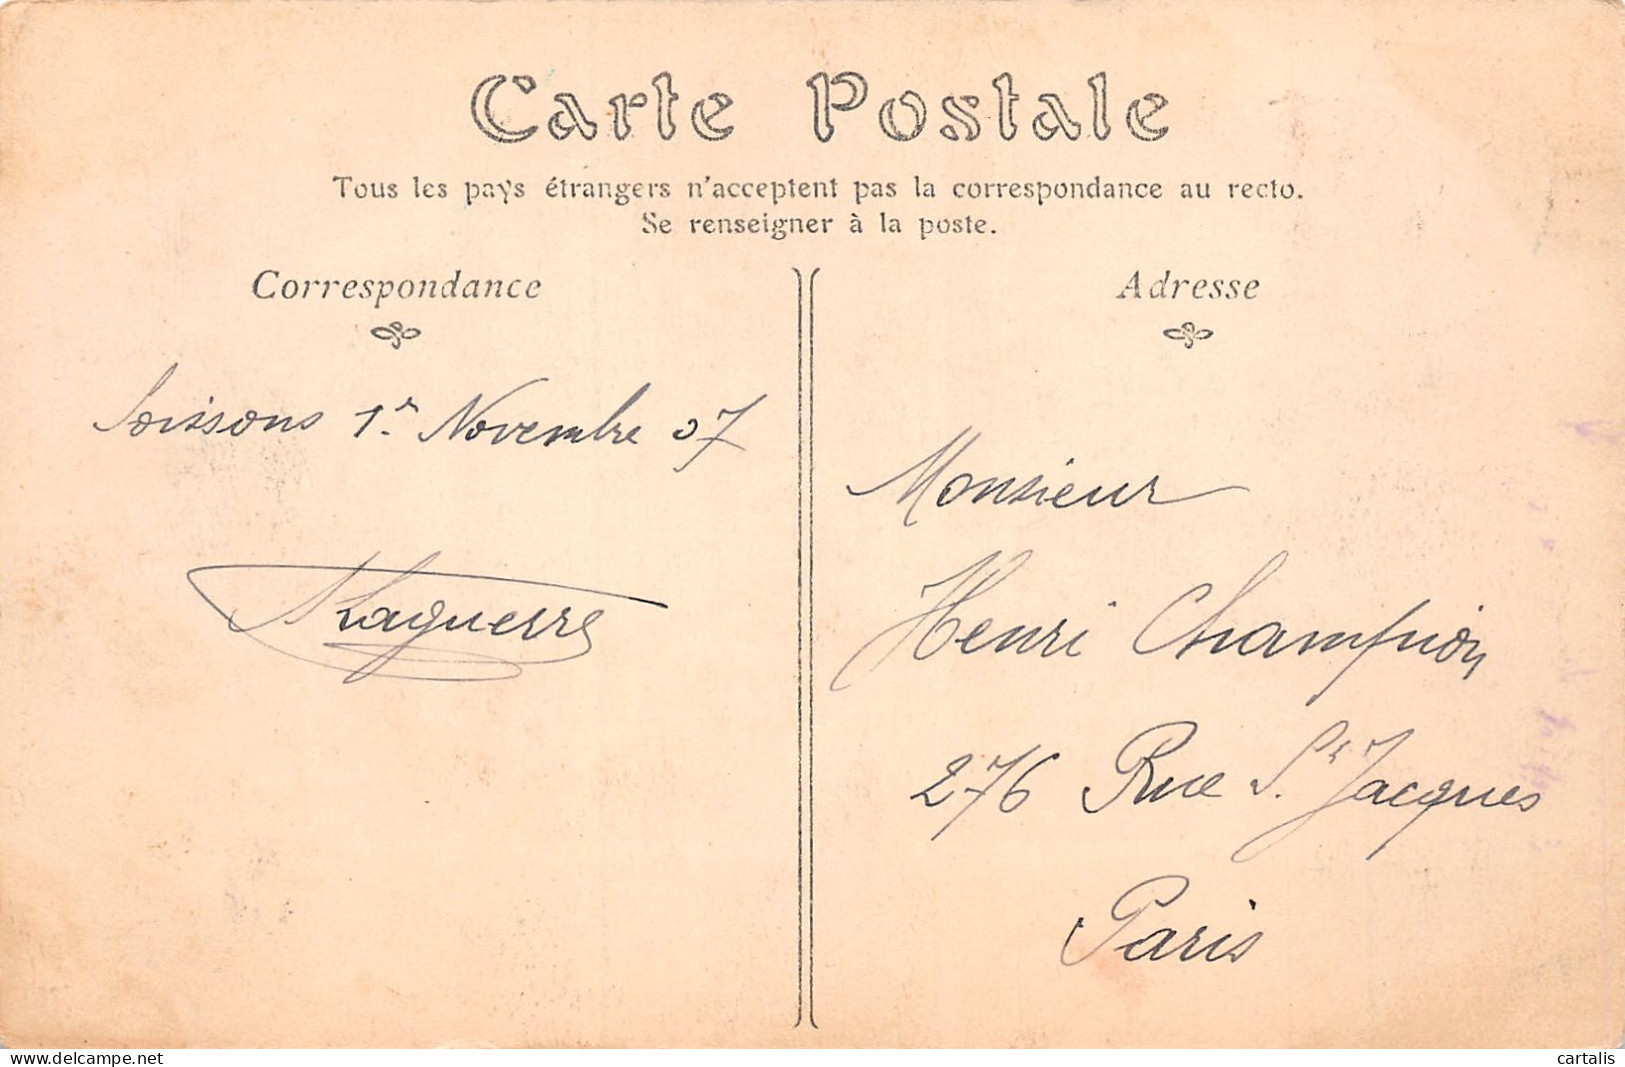 Carte Postale
Tous les pays étrangers n'acceptent pas la correspondance au recto.
Se renseigner à la poste.
Correspondance
Soissons 1er Novembre 07
Laguerre
Adresse
Monsieur
Henri Champion
276 Rue St. Jacques
Paris
delcampe.net
cartalis